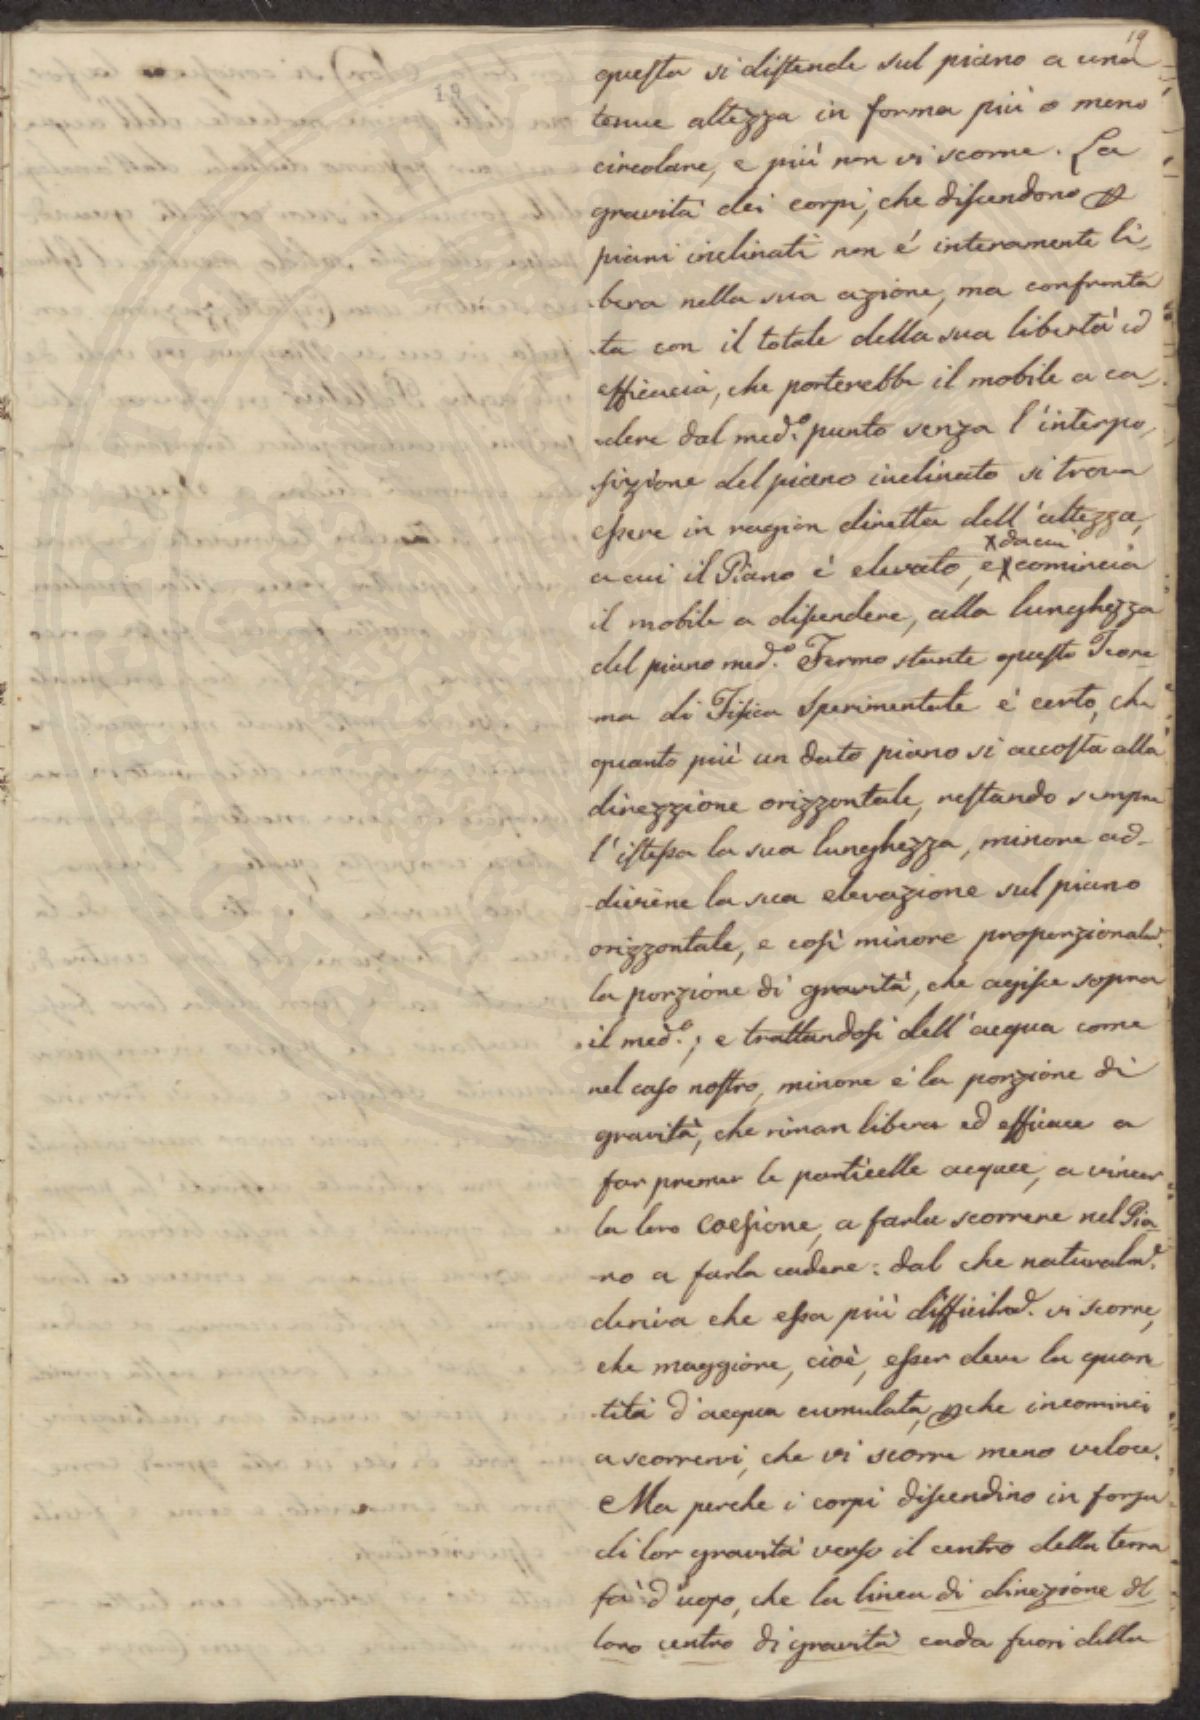 19
19
questa si distende sul piano a una
tenue altezza in forma più o meno
circolare, e più non vi scorre. La
gravità dei corpi, che discendono p
piani inclinati non é interamente li-
bera nella sua azione, ma confronta
ta con il totale della sua libertà ed
efficacia, che porterebbe il mobile a ca-
dere dal med.º punto senza l'interpo-
sizione del piano inclinato si trova
essere in ragion diretta dell'altezza,
x da cui
a cui il Piano é elevato, e x comincia
il mobile a discendere, alla lunghezza
del piano med.º Fermo stante questo Teore
ma di Fisica Sperimentale é certo, che
quanto più un dato piano si accosta alla
direzzione orizzontale, restando sempre
l'istessa la sua lunghezza, minore ad-
diviene la sua elevazione sul piano
orizzontale, e così minore proporzionalm.
la porzione di gravità, che agisce sopra
il med.º; e trattandosi dell'acqua come
nel caso nostro, minore é la porzione di
gravità, che riman libera ed efficace a
far premer le particelle acquee, a vincer
la loro coesione, a farle scorrere nel Pia
no a farla cadere: dal che naturalm.e
deriva che essa più difficilm. vi scorre,
che maggiore, cioè, esser deve la quan
tità d'acqua cumulata, pche incominci
a scorrervi, che vi scorre meno veloce.
Ma perche i corpi discendino in forza
di lor gravità verso il centro della terra
fà d'uopo, che la linea di direzione dl
loro centro di gravità cada fuori della